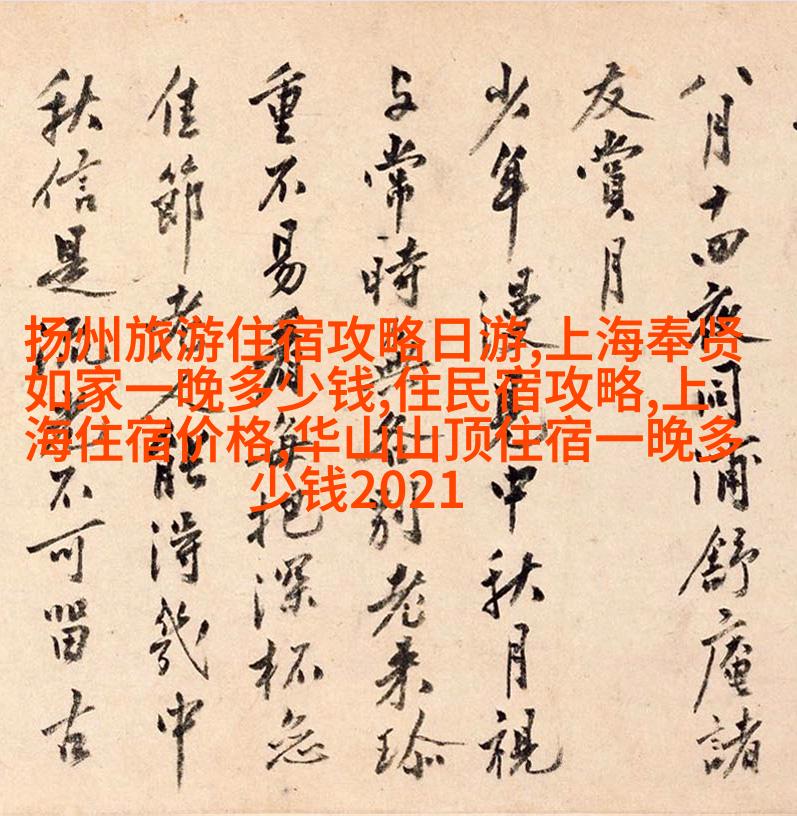 八月十四夜同浦舒庵諸
友賞月
少年漫見中秋月視
与常時分別老来珍
重不易看深杯
佳節老人能得幾中
秋信是流光不可留古
扬州旅游住宿攻略日游,上海奉贤
如家一晚多少钱,住民宿攻略,上
海住宿价格,华山山顶住宿一晚多
少钱2021